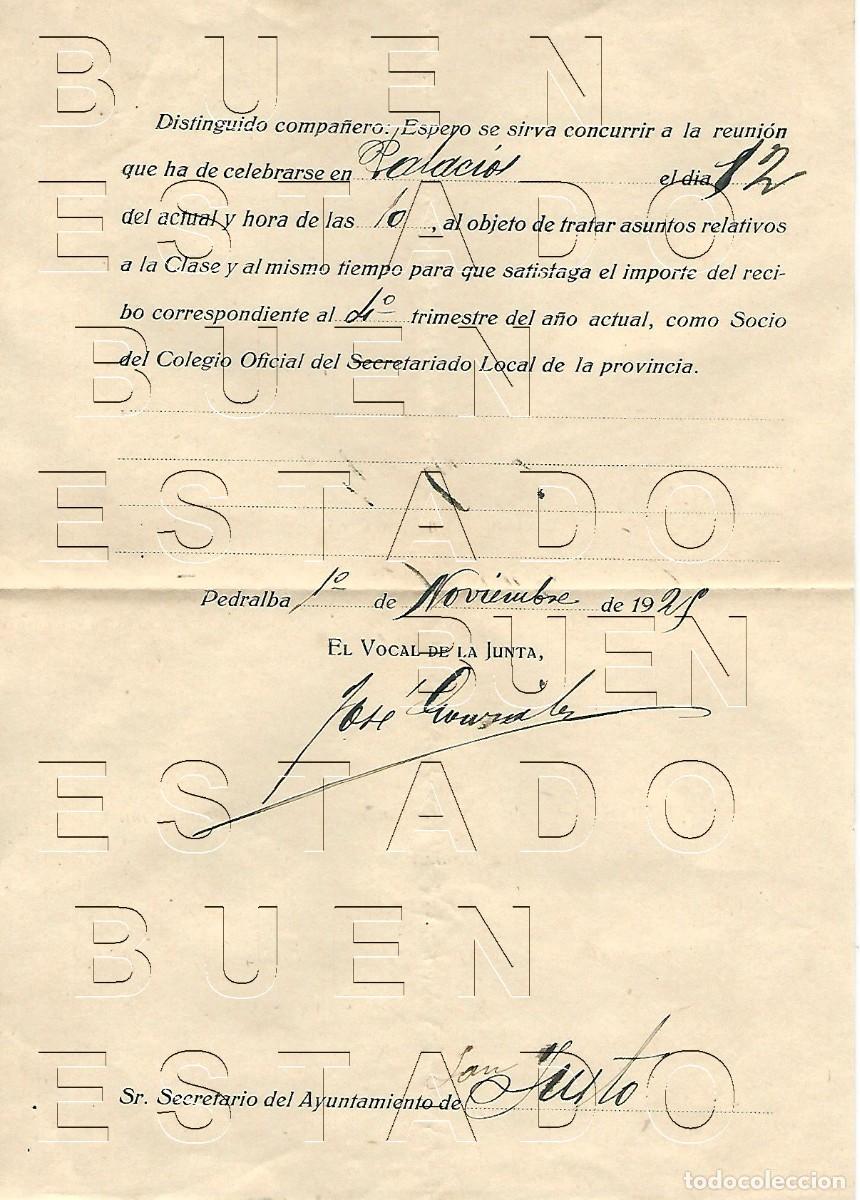 Distinguido compañero: Espero se sirva concurrir a la reunión
que ha de celebrarse en Palacios el dia 12
del actual y hora de las 10, al objeto de tratar asuntos relativos
a la Clase y al mismo tiempo para que satisfaga el importe del reci-
bo correspondiente al 4º trimestre del año actual, como Socio
del Colegio Oficial del Secretariado Local de la provincia.
Pedralba 1º de Noviembre de 1925
EL VOCAL DE LA JUNTA,
José Gonzalez
Sr. Secretario del Ayuntamiento de San Justo
BUEN
ESTADO
BUEN
ESTADO
BUEN
ESTADO
BUEN
ESTADO
todocoleccion